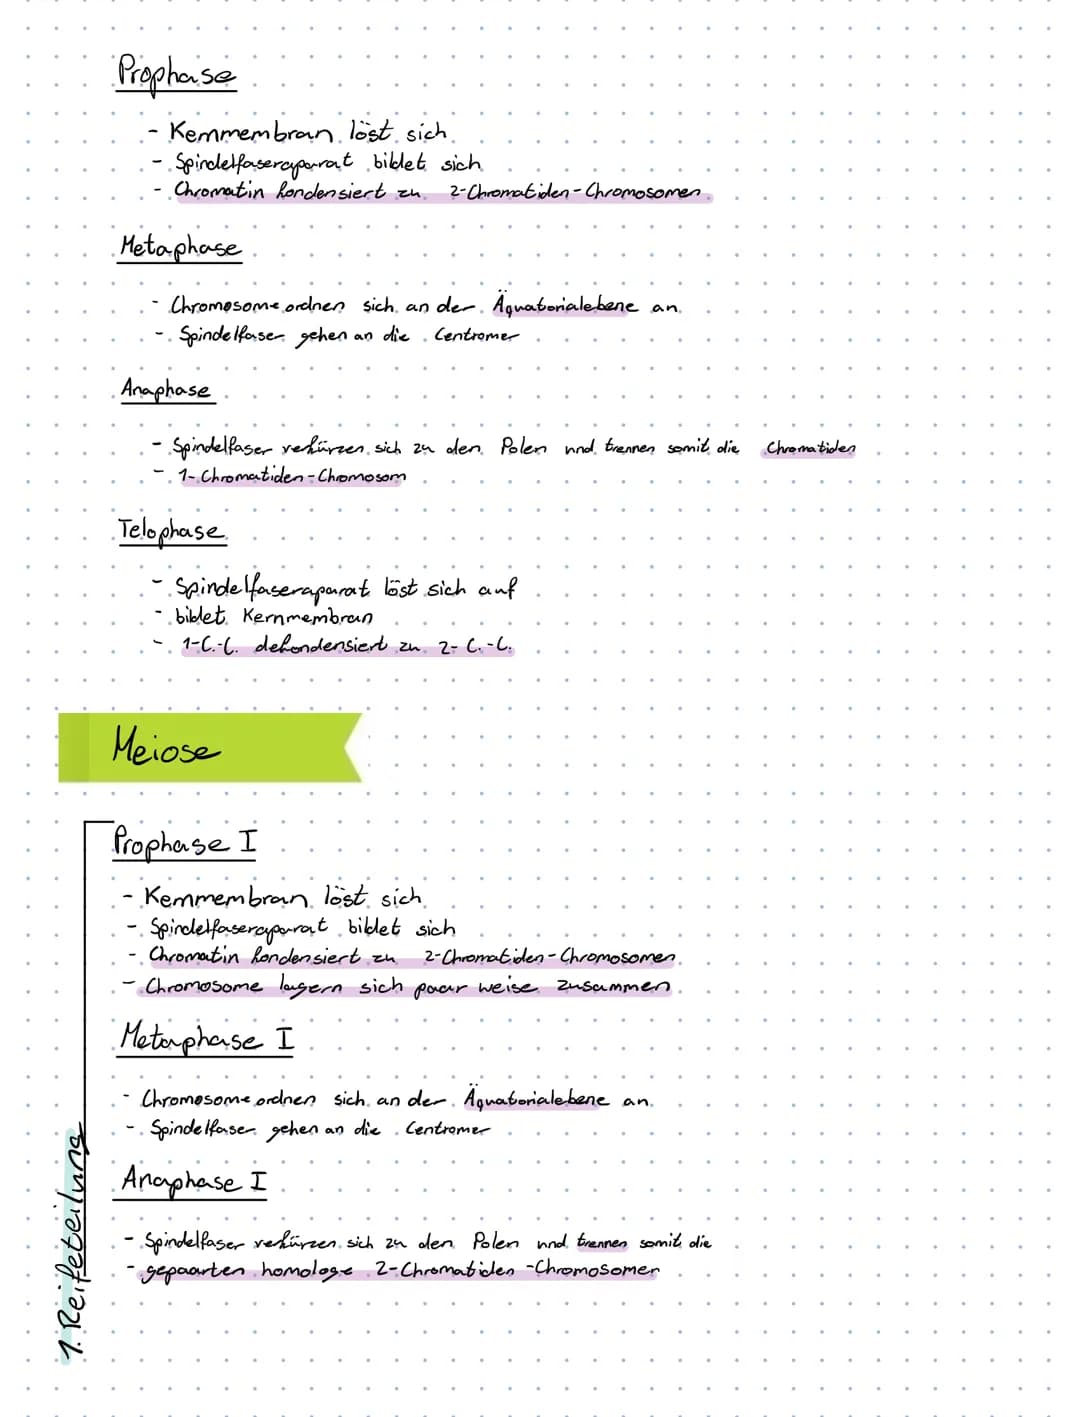 Prophase
- Kernmembran löst sich
- Spindelfaseraparat biblet sich
- Chromatin kondensiert zu 2-Chromatiden-Chromosomen
Metaphase
- Chromosome ordnen sich an der Äquatorialebene an
- Spindelfaser gehen an die Centromer
Anaphase
- Spindelfaser verkürzen sich zu den Polen und trennen somit die Chromatiden
- 1-Chromatiden-Chromosom
Telophase
- Spindelfaseraparat löst sich auf
- biblet Kernmembran
- 1-C.-C. dekondensiert zu 2-C.-C.
Meiose
1. Reifeteilung
Prophase I
- Kernmembran löst sich
- Spindelfaseraparat biblet sich
- Chromatin kondensiert zu 2-Chromatiden-Chromosomen
- Chromosome lagern sich paar weise zusammen
Metaphase I
- Chromosome ordnen sich an der Äquatorialebene an
- Spindelfaser gehen an die Centromer
Anaphase I
- Spindelfaser verkürzen sich zu den Polen und trennen somit die
- gepaarten homologe 2-Chromatiden-Chromosomen